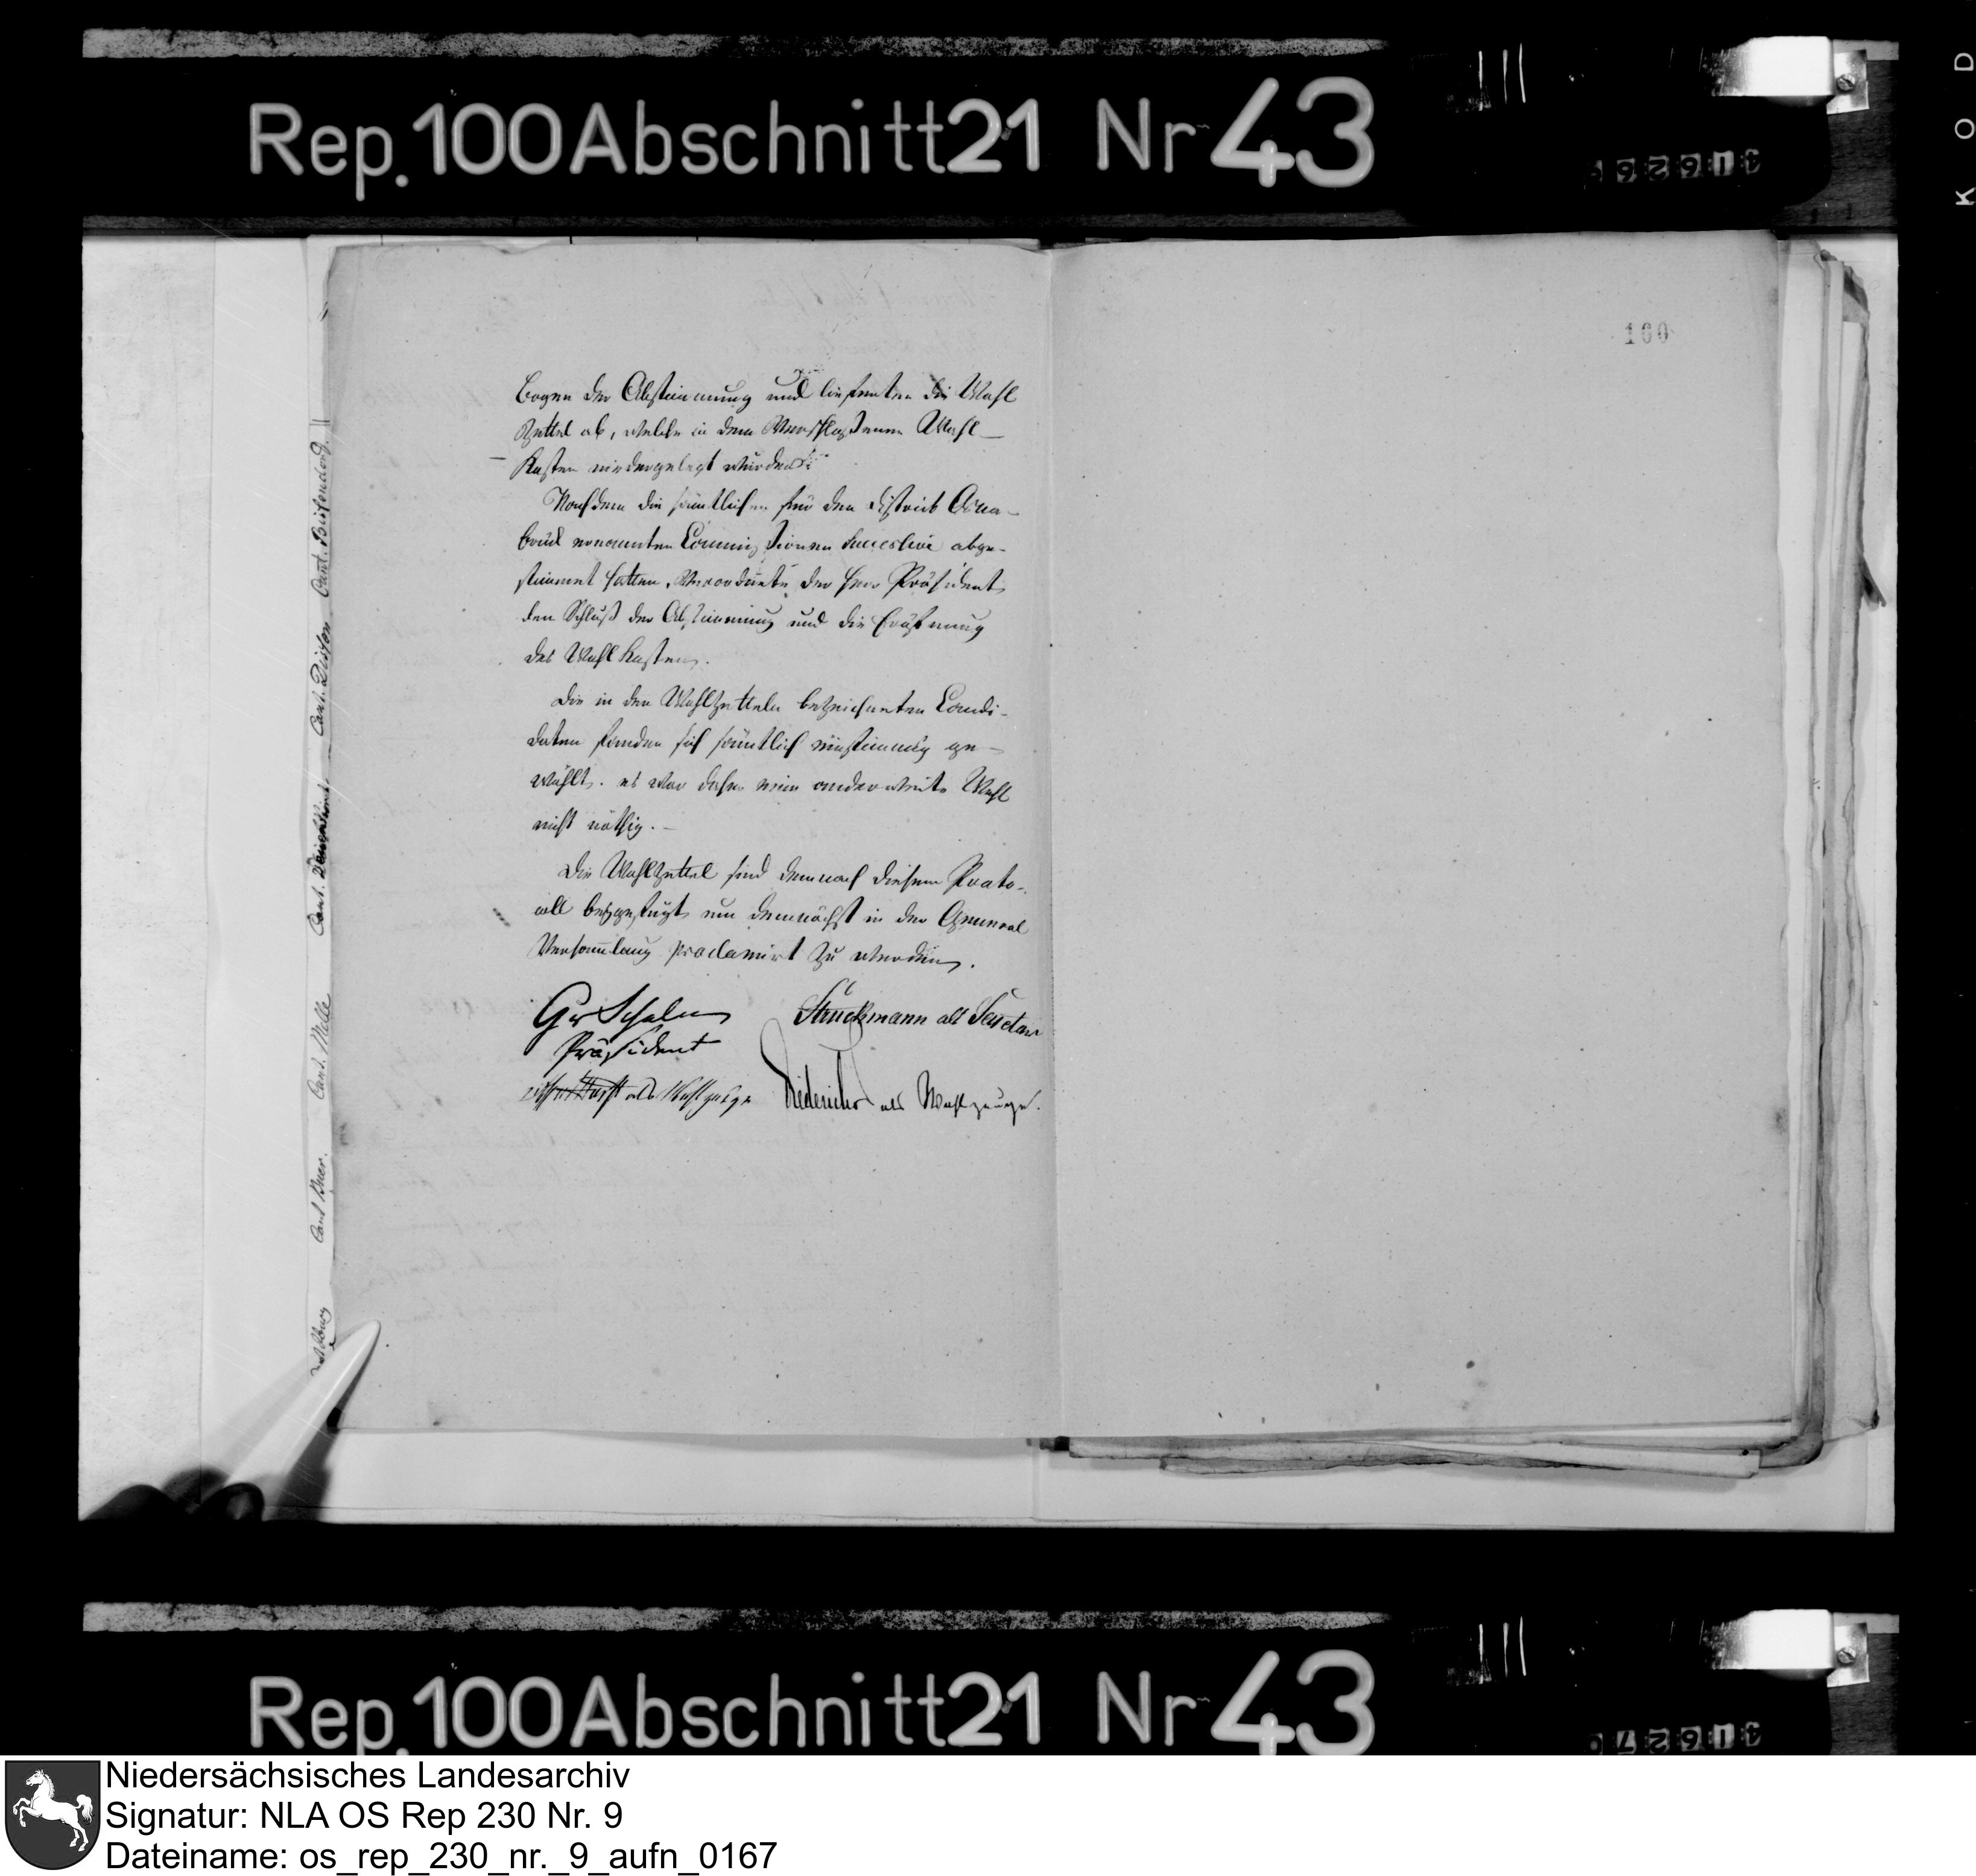 Rep. 100 Abschnitt 21 Nr 43
KOD
160
bogen der Abstimmung und lieferten die Wahl
Zettel ab, welche in dem Verschloßenen Wahl
Kasten niedergelegt wurden.
Nachdem die sämtlichen für den District Osna-
brück ernannten Commissionen successive abge-
stimmt hatten, Verordnete der Herr Präsident
den Schluß der Abstimmung und die Eröfnung
des Wahl Kastens.
Die in den Wahlzetteln bezeichneten Candi-
daten fanden sich sämtlich einstimmig ge-
wählt. es war daher eine anderweite Wahl
nicht nöthig.
Die Wahlzettel sind demnach diesem Proto-
coll beygefügt um demnächst in der General
Versammlung proclamirt zu werden.
Präsident
Struckmann als Secretair
als Wahlzeuge
als Wahlzeuge.
Cant. Buer. Cant. Melle Cant. Dissen Cant. Bissendorf.
Rep. 100 Abschnitt 21 Nr 43
Niedersächsisches Landesarchiv
Signatur: NLA OS Rep 230 Nr. 9
Dateiname: os_rep_230_nr._9_aufn_0167